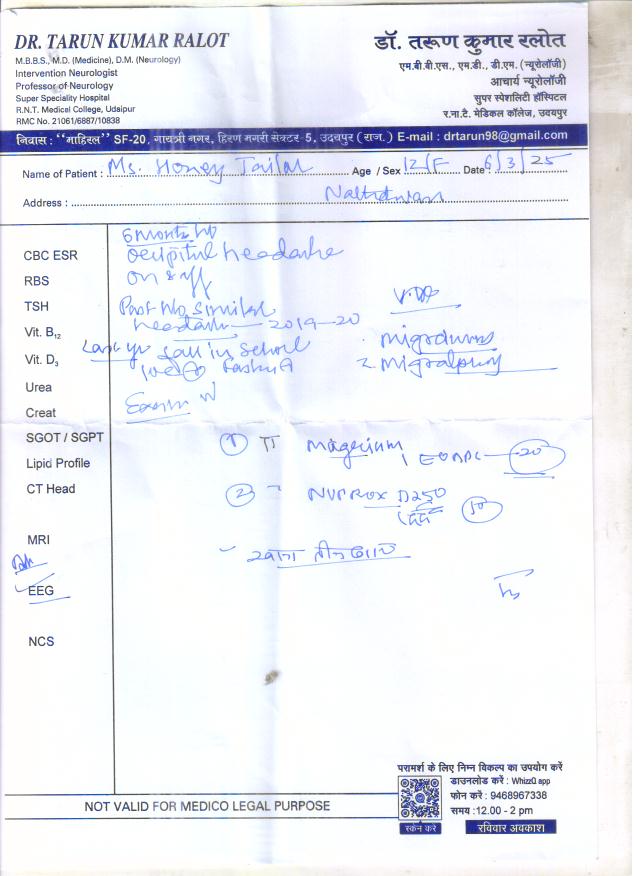 DR. TARUN KUMAR RALOT
M.B.B.S., M.D. (Medicine), D.M. (Neurology)
Intervention Neurologist
Professor of Neurology
Super Speciality Hospital
R.N.T. Medical College, Udaipur
RMC No. 21061/6887/10838
डॉ. तरूण कुमार रलोत
एम.बी.बी.एस., एम.डी., डी.एम. (न्यूरोलॉजी)
आचार्य न्यूरोलॉजी
सुपर स्पेशलिटी हॉस्पिटल
र.ना.टै. मेडिकल कॉलेज, उदयपुर
निवास : "माहिरल" SF-20, गायत्री नगर, हिरण मगरी सेक्टर-5, उदयपुर (राज.) E-mail : drtarun98@gmail.com
Name of Patient : Ms. Honey Age / Sex 12/F Date : 6/3/25
Address :
6 month
CBC ESR
Occipital headache
RBS
on & off
TSH
Past H/o similar
headache 2019-20
Vit. B12
Last yr fall in School
Vit. D3
Urea
Creat
Exam N
SGOT / SGPT
① Magerium
Lipid Profile
20
CT Head
② D 250
10
MRI
EEG
NCS
परामर्श के लिए निम्न विकल्प का उपयोग करें
डाउनलोड करें : WhizzQ app
फोन करें : 9468967338
समय :12.00 - 2 pm
स्कॅन करे
रविवार अवकाश
NOT VALID FOR MEDICO LEGAL PURPOSE